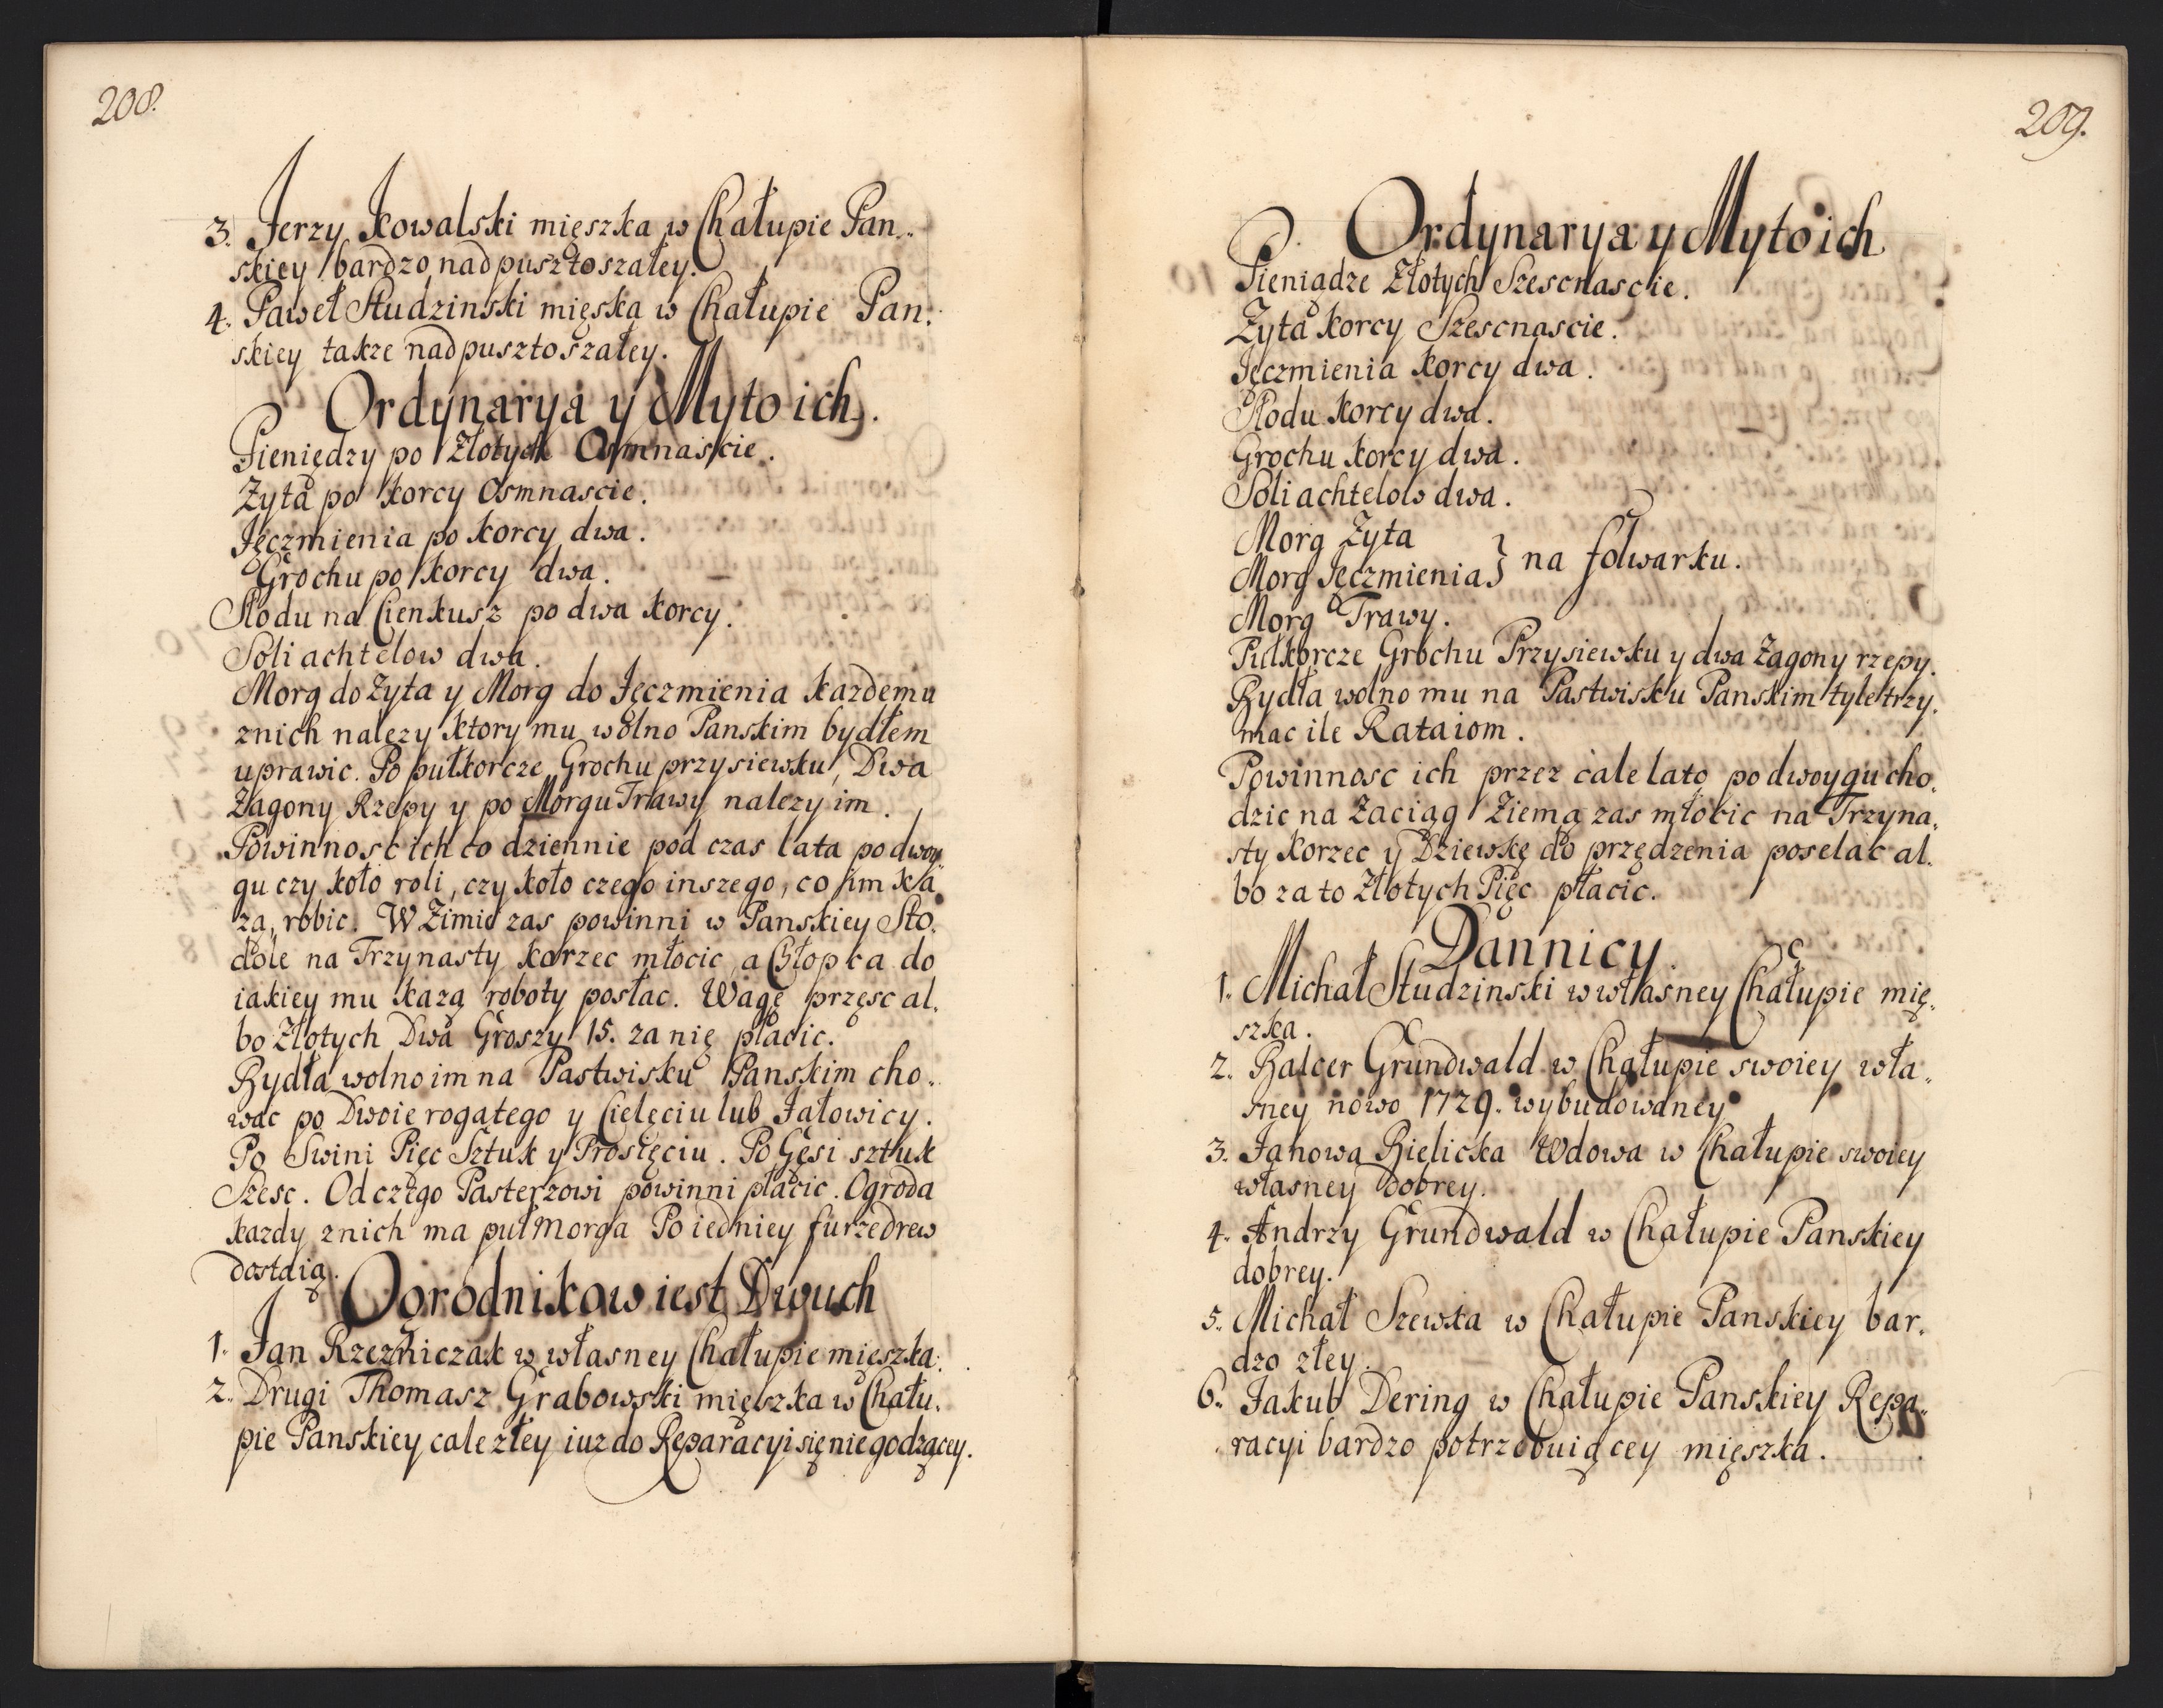 208.
3. Jerzy Kowalski mięszka w Chałupie Pan„
skiey bardzo nadpusztoszałey.
4. Paweł Studzinski mięska w Chałupie Pan„
skiey takze nadpusztoszałey.
Ordynarya y Myto ich.
Pieniędzy po Złotych Osmnascie.
Zyta po Korcy Osmnascie.
Jęczmienia po Korcy dwa.
Grochu po Korcy dwa.
Słodu na Cienkusz po dwa Korcy.
Soli achtelow dwa.
Morg do Zyta y Morg do Jęczmienia Kazdemu
znich nalezy Ktory mu wolno Panskim bydłem
uprawic. Po pułkorcze Grochu przysiewku, Dwa
Zagony Rzepy y po Morgu Trawy nalezy im.
Powinnosc ich co dziennie pod czas lata po dwoy„
gu czy Koło roli, czy Koło czego inszego, co im Ka„
zą, robic. W Zimie zas powinni w Panskiey Sto„
dole na Trzynasty Korzec młocic, a Chłopca do
iakiey mu Kazą roboty posłac. Wagę przęsc al„
bo Złotych Dwa Groszy 15. za nię płacic.
Bydła wolno im na Pastwisku Panskim cho„
wac po Dwoie rogatego y Cielęciu lub Jałowicy.
Po Swini Pięc Sztuk y Prosięciu. Po Gęsi sztuk
Szesc. Od czego Pasterzowi powinni płacic. Ogroda
Kazdy znich ma puł Morga Po iedniey furze drew
dostaią.
Ogrodnikow iest Dwuch
1. Jan Rzezniczak w własney Chałupie mieszka.
2. Drugi Thomasz Grabowski mięszka w Chału„
pie Panskiey cale złey iuz do Reparacyi się nie godzącey.
209.
Ordynarya y Myto ich
Pieniądze Złotych Szescnascie.
Zyta Korcy Szescnascie.
Jęczmienia Korcy dwa.
Słodu Korcy dwa.
Grochu Korcy dwa.
Soli achtelow dwa.
Morg Zyta
Morg Jęczmienia } na folwarku.
Morg Trawy.
Pułkorcze Grochu Przysiewku y dwa Zagony rzepy.
Bydła wolno mu na Pastwisku Panskim tyle trzy„
mac ile Rataiom.
Powinnosc ich przez cale lato po dwoygu cho„
dzic na Zaciąg Ziemą zas młocic na Trzyna„
sty Korzec y Dziewkę do przędzenia poselac al„
bo za to Złotych Pięc płacic.
Dannicy
1. Michał Studzinski w własney Chałupie mię„
szka.
2. Balcer Grundwald w Chałupie swoiey wła„
sney nowo 1729. wybudowaney
3. Janowa Bielicka Wdowa w Chałupie swoiey
własney dobrey.
4. Andrzy Grundwald w Chałupie Panskiey
dobrey.
5. Michał Szewka w Chałupie Panskiey bar„
dzo złey.
6. Jakub Dering w Chałupie Panskiey Repa„
racyi bardzo potrzebuiącey mięszka.